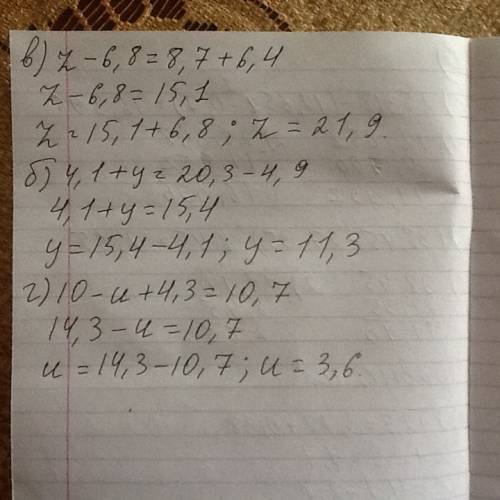 в) z – 6,8 = 8,7 + 6,4
z – 6,8 = 15,1
z = 15,1 + 6,8 ; z = 21,9.
б) 4,1 + y = 20,3 – 4,9
4,1 + y = 15,4
y = 15,4 – 4,1 ; y = 11,3
г) 10 – u + 4,3 = 10,7
14,3 – u = 10,7
u = 14,3 – 10,7 ; u = 3,6.